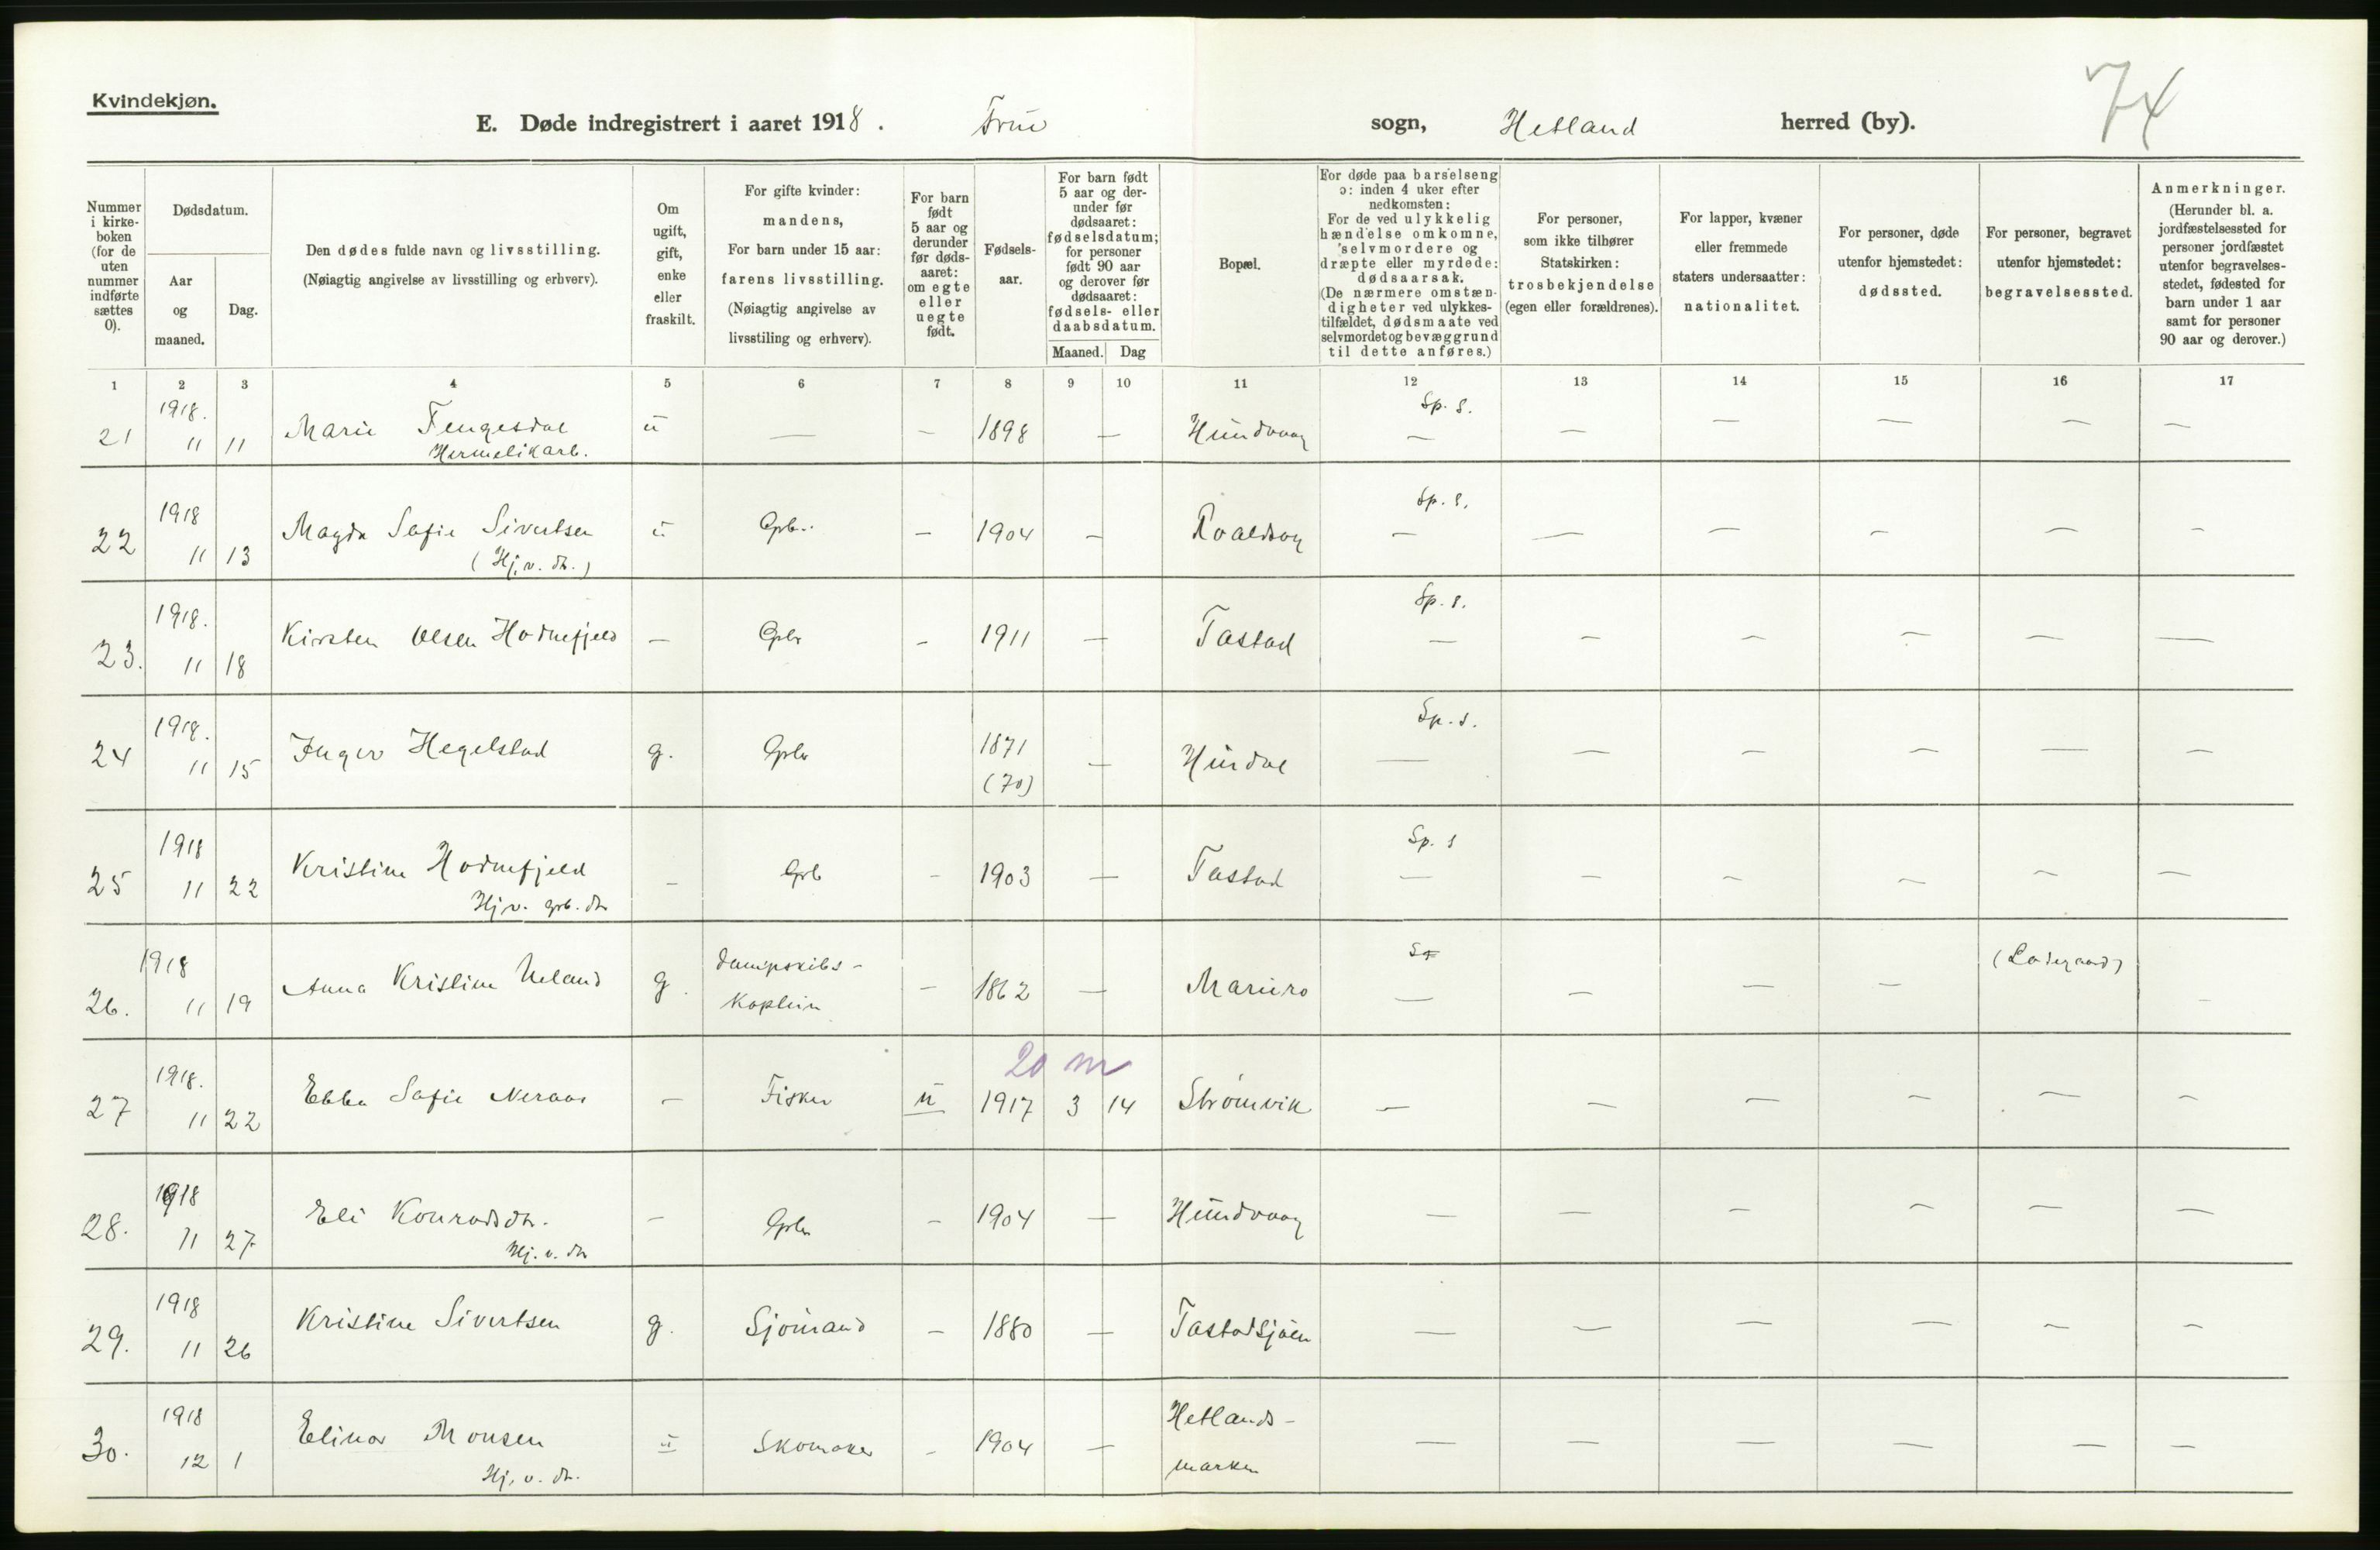 Kvindekjøn.
74
E. Døde indregistrert i aaret 1918. Frue sogn, Hetland herred (by).
Nummer i kirke-boken (for de uten nummer indførte sættes 0).
Dødsdatum.
Aar og maaned.
Dag.
Den dødes fulde navn og livsstilling.
(Nøiagtig angivelse av livsstilling og erhverv).
Om ugift, gift, enke eller fraskilt.
For gifte kvinder: mandens,
For barn under 15 aar: farens livsstilling.
(Nøiagtig angivelse av livsstiling og erhverv).
For barn født 5 aar og derunder før døds-aaret: om egte eller uegte født.
Fødsels-aar.
For barn født 5 aar og der-under før dødsaaret: fødselsdatum; for personer født 90 aar og derover før dødsaaret: fødsels- eller daabsdatum.
Maaned. Dag
Bopæl.
For døde paa barselseng ɔ: inden 4 uker efter nedkomsten:
For de ved ulykkelig hændelse omkomne, selvmordere og dræpte eller myrdede: dødsaarsak.
(De nærmere omstæn-digheter ved ulykkes-tilfældet, dødsmaate ved selvmordet og bevæggrund til dette anføres.)
For personer, som ikke tilhører Statskirken: trosbekjendelse (egen eller forældrenes).
For lapper, kvæner eller fremmede staters undersaatter: nationalitet.
For personer, døde utenfor hjemstedet: dødssted.
For personer, begravet utenfor hjemstedet: begravelsessted.
Anmerkninger.
(Herunder bl. a. jordfæstelsessted for personer jordfæstet utenfor begravelses-stedet, fødested for barn under 1 aar samt for personer 90 aar og derover.)
1 2 3 4 5 6 7 8 9 10 11 12 13 14 15 16 17
1918. Sp. s.
21 11 11 Marie Fengesdal u — — 1898 — Hundvaag — — — — — —
Hermetikarb.
1918 Sp. s.
22 11 13 Magda Sofie Sivertsen u Grb. — 1904 — Roaldsøy — — — — — —
(Hj. v. dtr.)
1918. Sp. s.
23. 11 18 Kirsten Olsen Hodnefjeld — Grbr — 1911 — Tastad — — — — — —
1918. Sp. s.
24 11 15 Inger Hegelstad g. Grbr 1871 — Hindal — — — — — —
(70)
1918 Sp. s
25 11 22 Kristine Hodnefjeld — Grb — 1903 — Tastad — — — — — —
Hj v. grb. dtr
1918 dampskibs-
26. 11 19 Anna Kristine Ueland g. Kaptein — 1862 — Mariero — — — — (Ladegaard) —
20 m
1918.
27 11 22 Ebba Sofie Neraas — Fisker u 1917 3 14 Strømvik — — — — — —
1918
28. 11 27 Eli Konradsdtr. — Grbr — 1904 — Hundvaag — — — — — —
Hj. v. dtr
1918
29. 11 26 Kristine Sivertsen g. Sjømand — 1880 — Tastadsjøen — — — — — —
1918 Hetlands-
30. 12 1 Elinor Monsen u Skomaker — 1904 — marken — — — — — —
Hj. v. dtr.